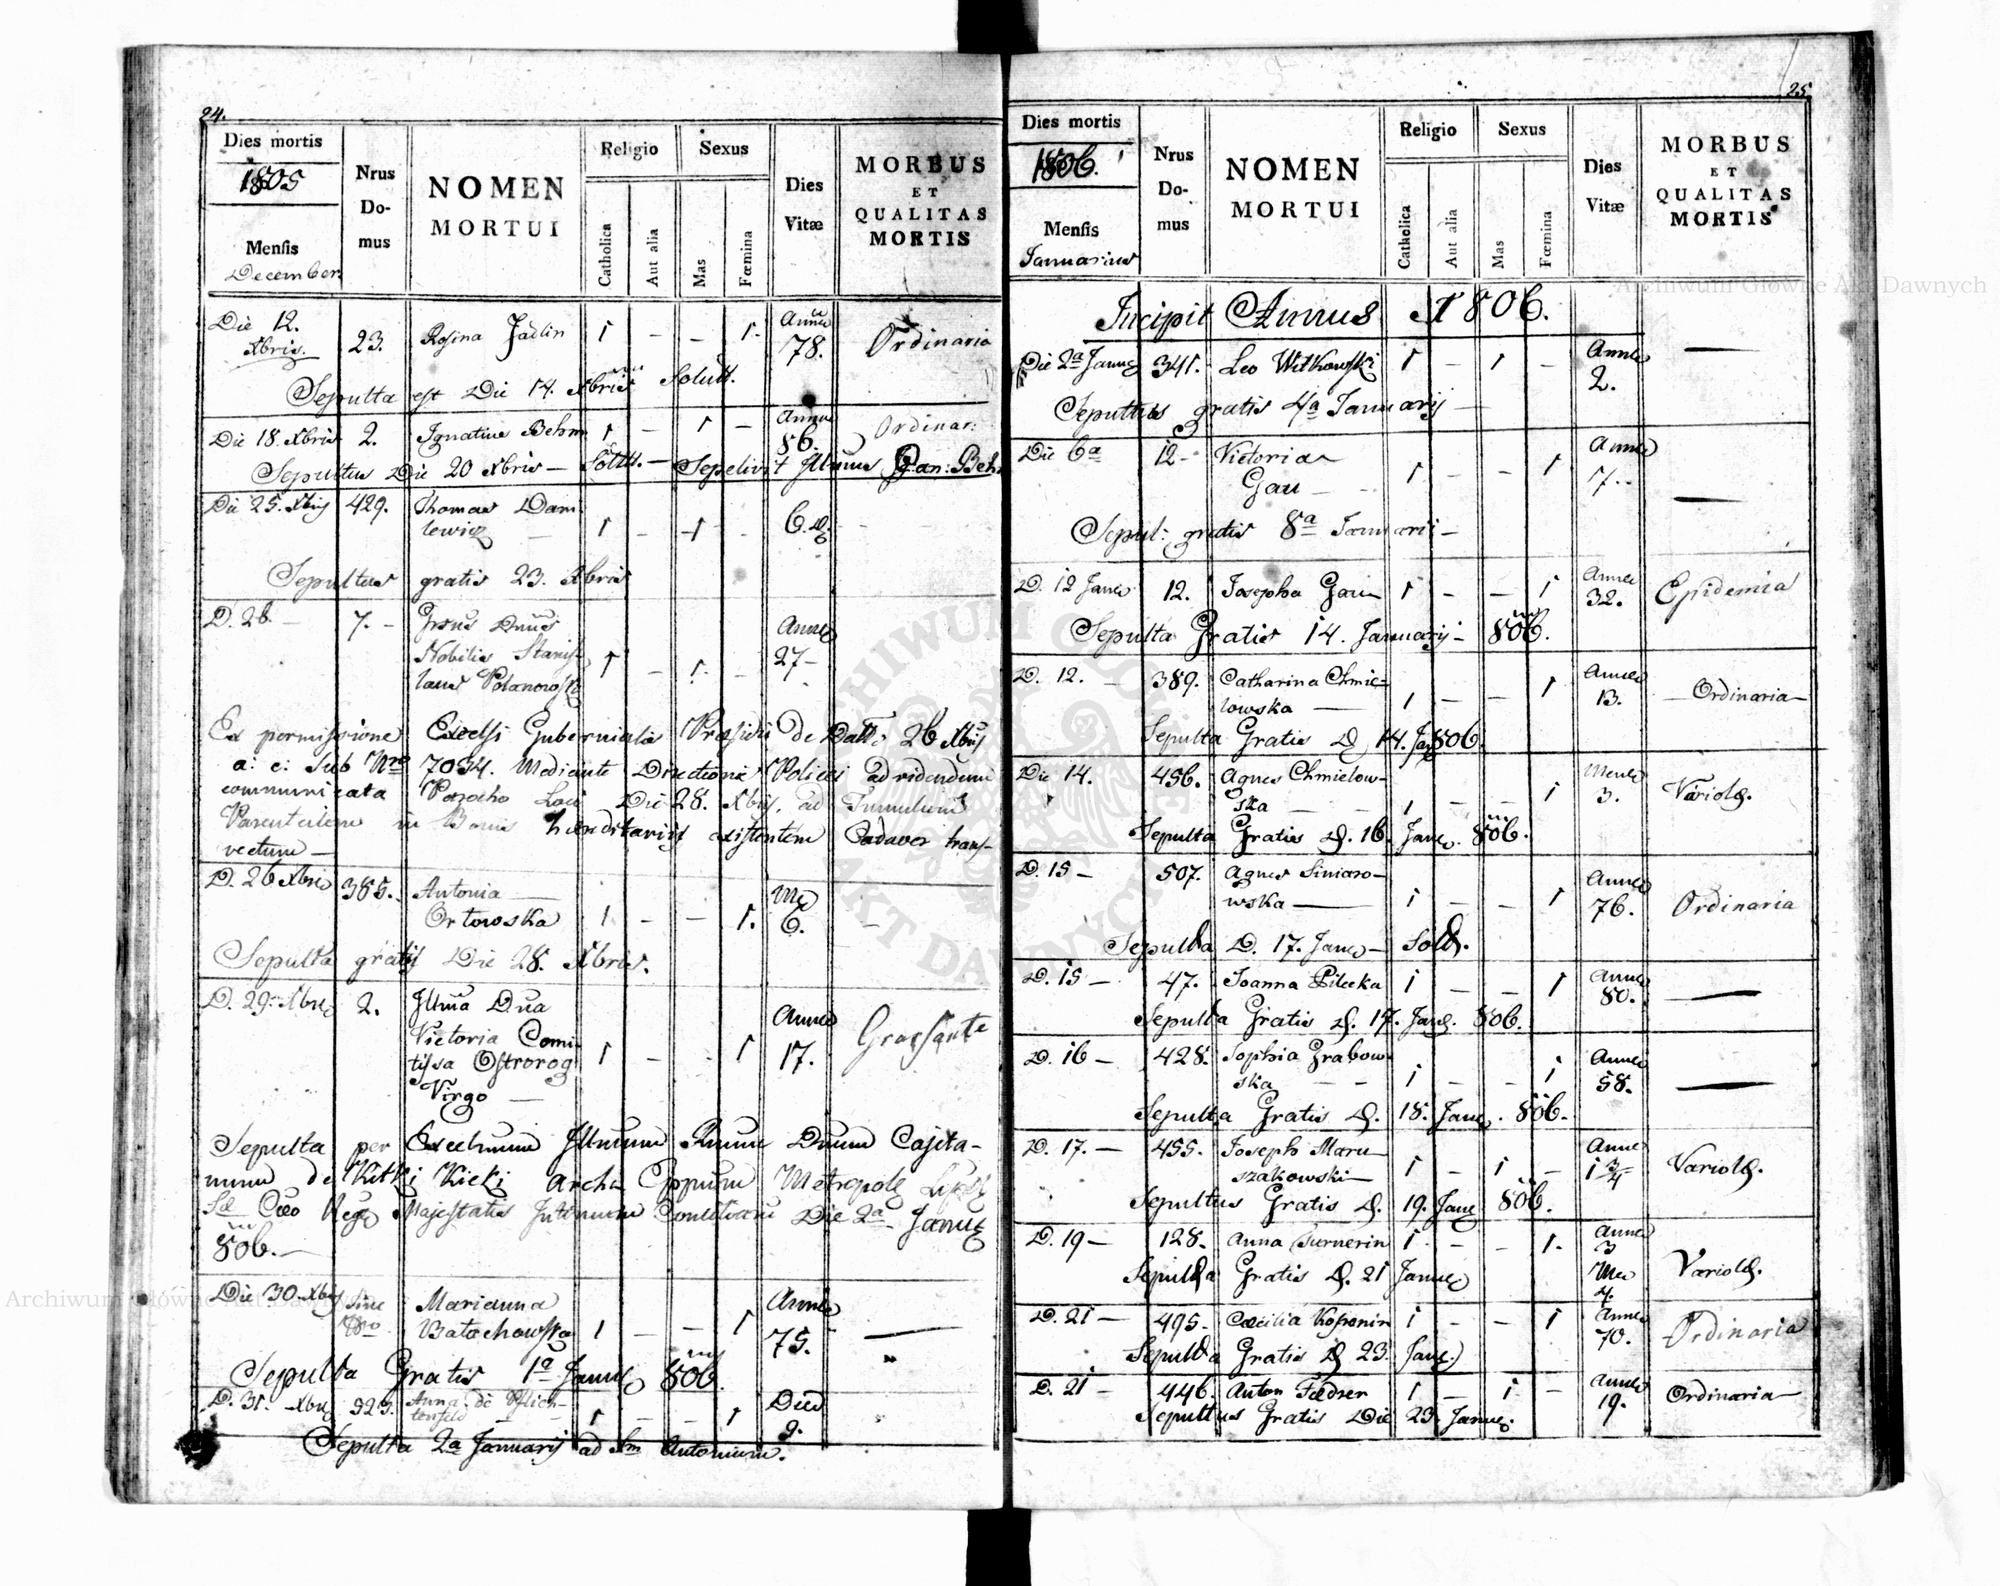 24.
Dies mortis
1805
Mensis
December
Nrus Do-mus
NOMEN
MORTUI
Religio
Catholica
Aut alia
Sexus
Mas
Fœmina
Dies
Vitæ
MORBUS
ET
QUALITAS
MORTIS
Die 12. Xbris. 23. Rosina 1 – – 1. Annu 78. Ordinaria
Sepulta est Die 14. Xbris Solutt.
Die 18. Xbris 2. Ignatius Behm 1 – 1 – Annu 86. Ordinar:
Sepultus Die 20 Xbris – Solutt. – Sepelivit Illmus
Die 25. Xbris 429. Thomas Dani
lewicz 1 – 1 – 6. D.
Sepultus gratis 23. Xbris
D. 26. – 7. –
Nobilis Stanis-
laus 1 – 1. – Annus 27 –
Ex permissione Excelsi Gubernialis Præsidii de Datto 26 Xbris
a: c: sub Nro 7034. Mediante Directione Policei
communicata Parocho Loci Die 28. Xbris, ad Tumulum
Parentelem in Bonis hæreditariis existentem Cadaver trans-
vectum –
D. 26 Xbris 385. Antonia
Ortowska 1 – – 1. 6. –
Sepulta gratis Die 28. Xbris.
D. 29. Xbris 2. Illma Dna
Victoria Comi-
tissa Ostrorog
Virgo – 1 – – 1 Annus 17. Grassante
Sepulta per Excellmum Illmum Rmum Dnum Cajeta-
num de Kicki Archi Eppum Metropol
Majestatis Intimum Die 2a Januar
806. –
Die 30. Xbris sine Nro Marianna
Batachowska 1 – – 1 Annus 75. –
Sepulta Gratis 1a Januar 806
D. 31. Xbris 323. Anna de
1 – – 1 Dies 9.
Sepulta 2a Januarii ad Sm Antonium.
25
Dies mortis
1806.
Mensis
Januarius
Nrus
Do-
mus
NOMEN
MORTUI
Religio
Catholica
Aut alia
Sexus
Mas
Fœmina
Dies
Vitæ
MORBUS
ET
QUALITAS
MORTIS
Incipit Annus 1806.
Die 2a Januar 341. Leo Witkowski 1 – 1 – Annus 2. –
Sepultus gratis 4a Januarij –
Die 6a 12 – Victoria
Gau – 1 – – 1 Annus 7. –
Sepul: gratis 8a Januarii –
D. 12 Januar 12. Josepha Gau 1 – – 1 Annus 32. Epidemia
Sepulta Gratis 14. Januarij – 806.
D. 12. 389. Catharina Chmie-
lowska – 1 – – 1 Annus 13. – Ordinaria –
Sepulta Gratis D. 14. Jan 806.
Die 14. 456. Agnes Chmielow-
ska – 1 – – 1 Mens 3. Variol.
Sepulta Gratis D. 16. Janu. 806.
D. 15 – 507. Agnes Siniaro-
wska – 1 – – 1 Annus 76. Ordinaria
Sepulta D. 17. Janu – Sol.
D. 15 – 47. Joanna Pilecka 1 – – 1 Annus 80. –
Sepulta Gratis D. 17. Janu. 806.
D. 16 – 428. Sophia Grabow-
ska – 1 – – 1 Annus 58. –
Sepulta Gratis D. 18. Janu. 806.
D. 17. – 455. Joseph Maru-
szakowski – 1 – 1 – Annus 1 3/4 Variol.
Sepultus Gratis D. 19. Janu 806.
D. 19 – 128. Anna Turnerin 1 – – 1. Annus 3 Men 4. Variol.
Sepulta Gratis D. 21 Janu
D. 21 – 495. Cæcilia 1 – – 1 Annus 70. Ordinaria
Sepulta Gratis D 23. Janu.
D. 21 – 446. Anton 1 – 1 – Annus 19. Ordinaria –
Sepultus Gratis Die 23. Janu.
Archiwum Główne Akt Dawnych
Archiwum Główne Akt Dawnych
ARCHIWUM GŁÓWNE
AKT DAWNYCH